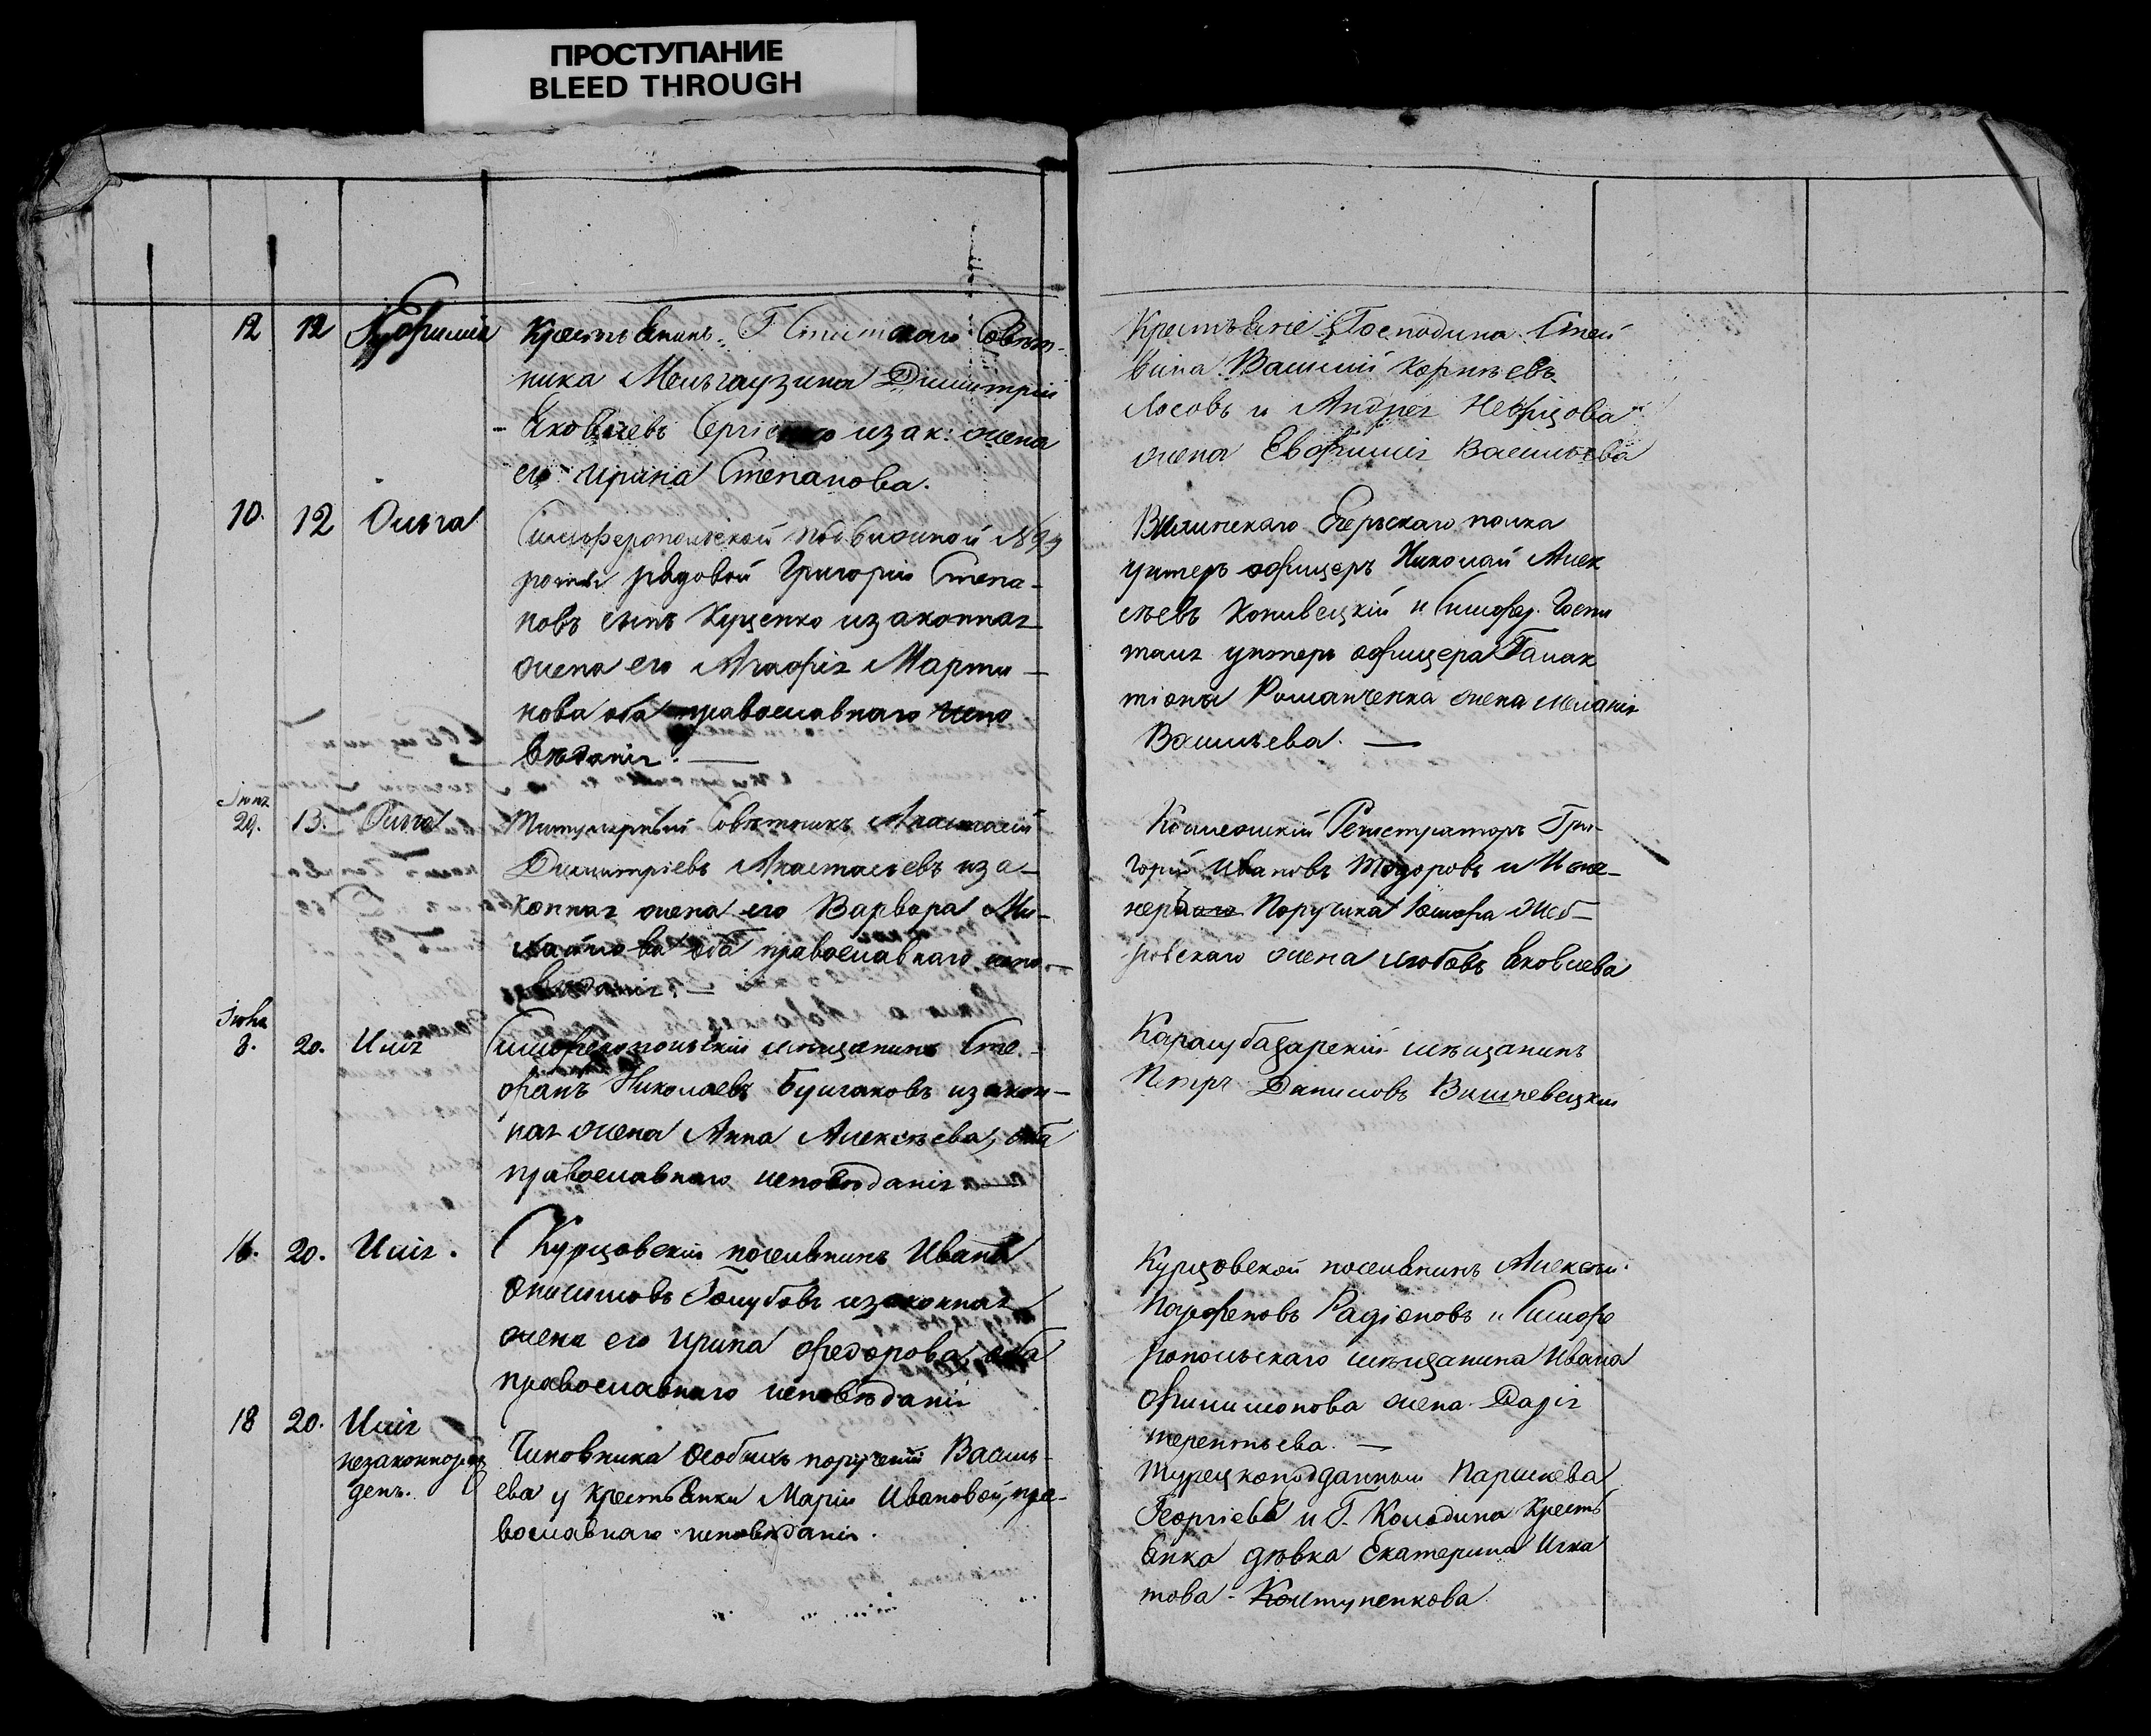 ПРОСТУПАНИЕ
BLEED THROUGH
12 12 Ефимiя Крестьянинъ Г. Статскаго Совѣт-
ника Мельгаузина Димитрiй
Яковлевъ изак: жена
его Ирина Степанова.
Крестьяне Господина
Василiй Корнѣевъ
Лосовъ и Андрея
жена Евфимiя Васильева
10. 12 Ольга Симферопольской подвижной №
роты рядовой Григорiй Степа-
новъ сынъ Куценко изаконная
жена его Агафiя Марти-
нова оба православнаго испо
вѣданiя. —
Виленскаго Егерскаго полка
унтеръ офицеръ Николай Алек
сѣевъ и Симфер. Госпи
таля унтеръ офицера Галак
тiона Романченка жена Меланiя
Васильева. —
Iюля
29. 13. Ольга Титулярный Совѣтникъ Анастасiй
Димитрiевъ Анастасьевъ иза-
конная жена его Варвара Ми-
хайлова оба православнаго испо-
вѣданiя. —
Коллежскiй Регистраторъ Гри-
горiй Ивановъ Тодоровъ и Инже-
нер Поручика
жена Любовь Яковлева
8. 20. Илiя Симферопольскiй мѣщанинъ Сте-
фанъ Николаевъ Булгаковъ изакон-
ная жена Анна Алексѣева, оба
православнаго исповѣданiя —
Карасубазарскiй мѣщанинъ
Петръ Даниловъ Вишневецкiй
16. 20. Илiя. Курцовскiй поселянинъ Иванъ
Онисимовъ Голубовъ изаконная
жена его Ирина Федорова, оба
православнаго исповѣданiя
Курцовской поселянинъ Алексѣй
Парфеновъ Радiоновъ и Симфе
ропольскаго мѣщанина Ивана
Филимонова жена Дарiя
Терентьева. —
18 20. Илiя
незаконнорож
ден. Чиновника особыхъ порученiй Василь-
ева у крестьянки Марiи Ивановой, пра-
вославнаго исповѣданiя.
Турецкоподданный Параскева
Георгiевъ и Г. Колодина Кресть
янка дѣвка Екатерина Игна
това